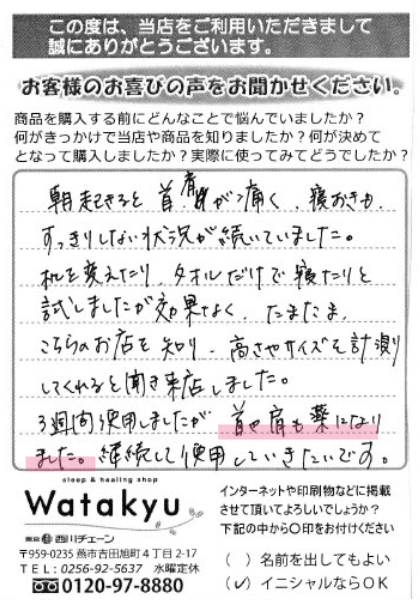 この度は、当店をご利用いただきまして
誠にありがとうございます。
お客様のお喜びの声をお聞かせください。
商品を購入する前にどんなことで悩んでいましたか？
何がきっかけで当店や商品を知りましたか？何が決めて
となって購入しましたか？実際に使ってみてどうでしたか？
朝起きると首肩が痛く、寝おきも
すっきりしない状況が続いていました。
机を変えたり、タオルだけで寝たりと
試しましたが効果なく、たまたま、
こちらのお店を知り、高さやサイズを計測
してくれると聞き来店しました。
3週間使用しましたが首や肩も楽になり
ました。継続して使用していきたいです。
sleep & healing shop
Watakyu
西川チェーン
〒959-0235 燕市吉田旭町4丁目2-17
TEL: 0256-92-5637 水曜定休
0120-97-8880
インターネットや印刷物などに掲載
させて頂いてよろしいでしょうか？
下記の中から〇印をお付けください
（ ）名前を出してもよい
（✓）イニシャルならOK